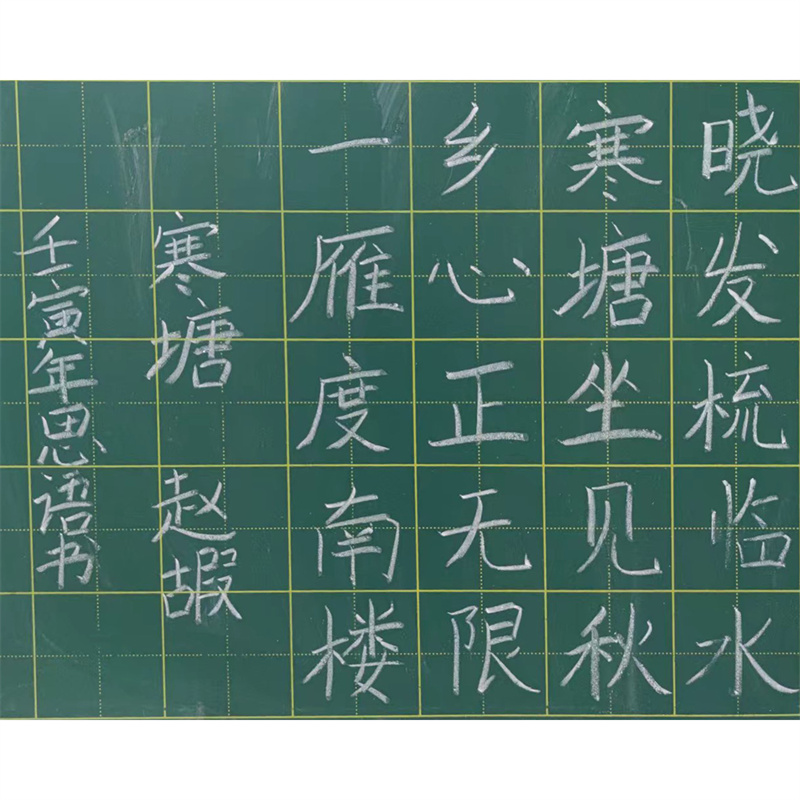 晓发梳临水
寒塘坐见秋
乡心正无限
一雁度南楼
寒塘 赵嘏
壬寅年思语书